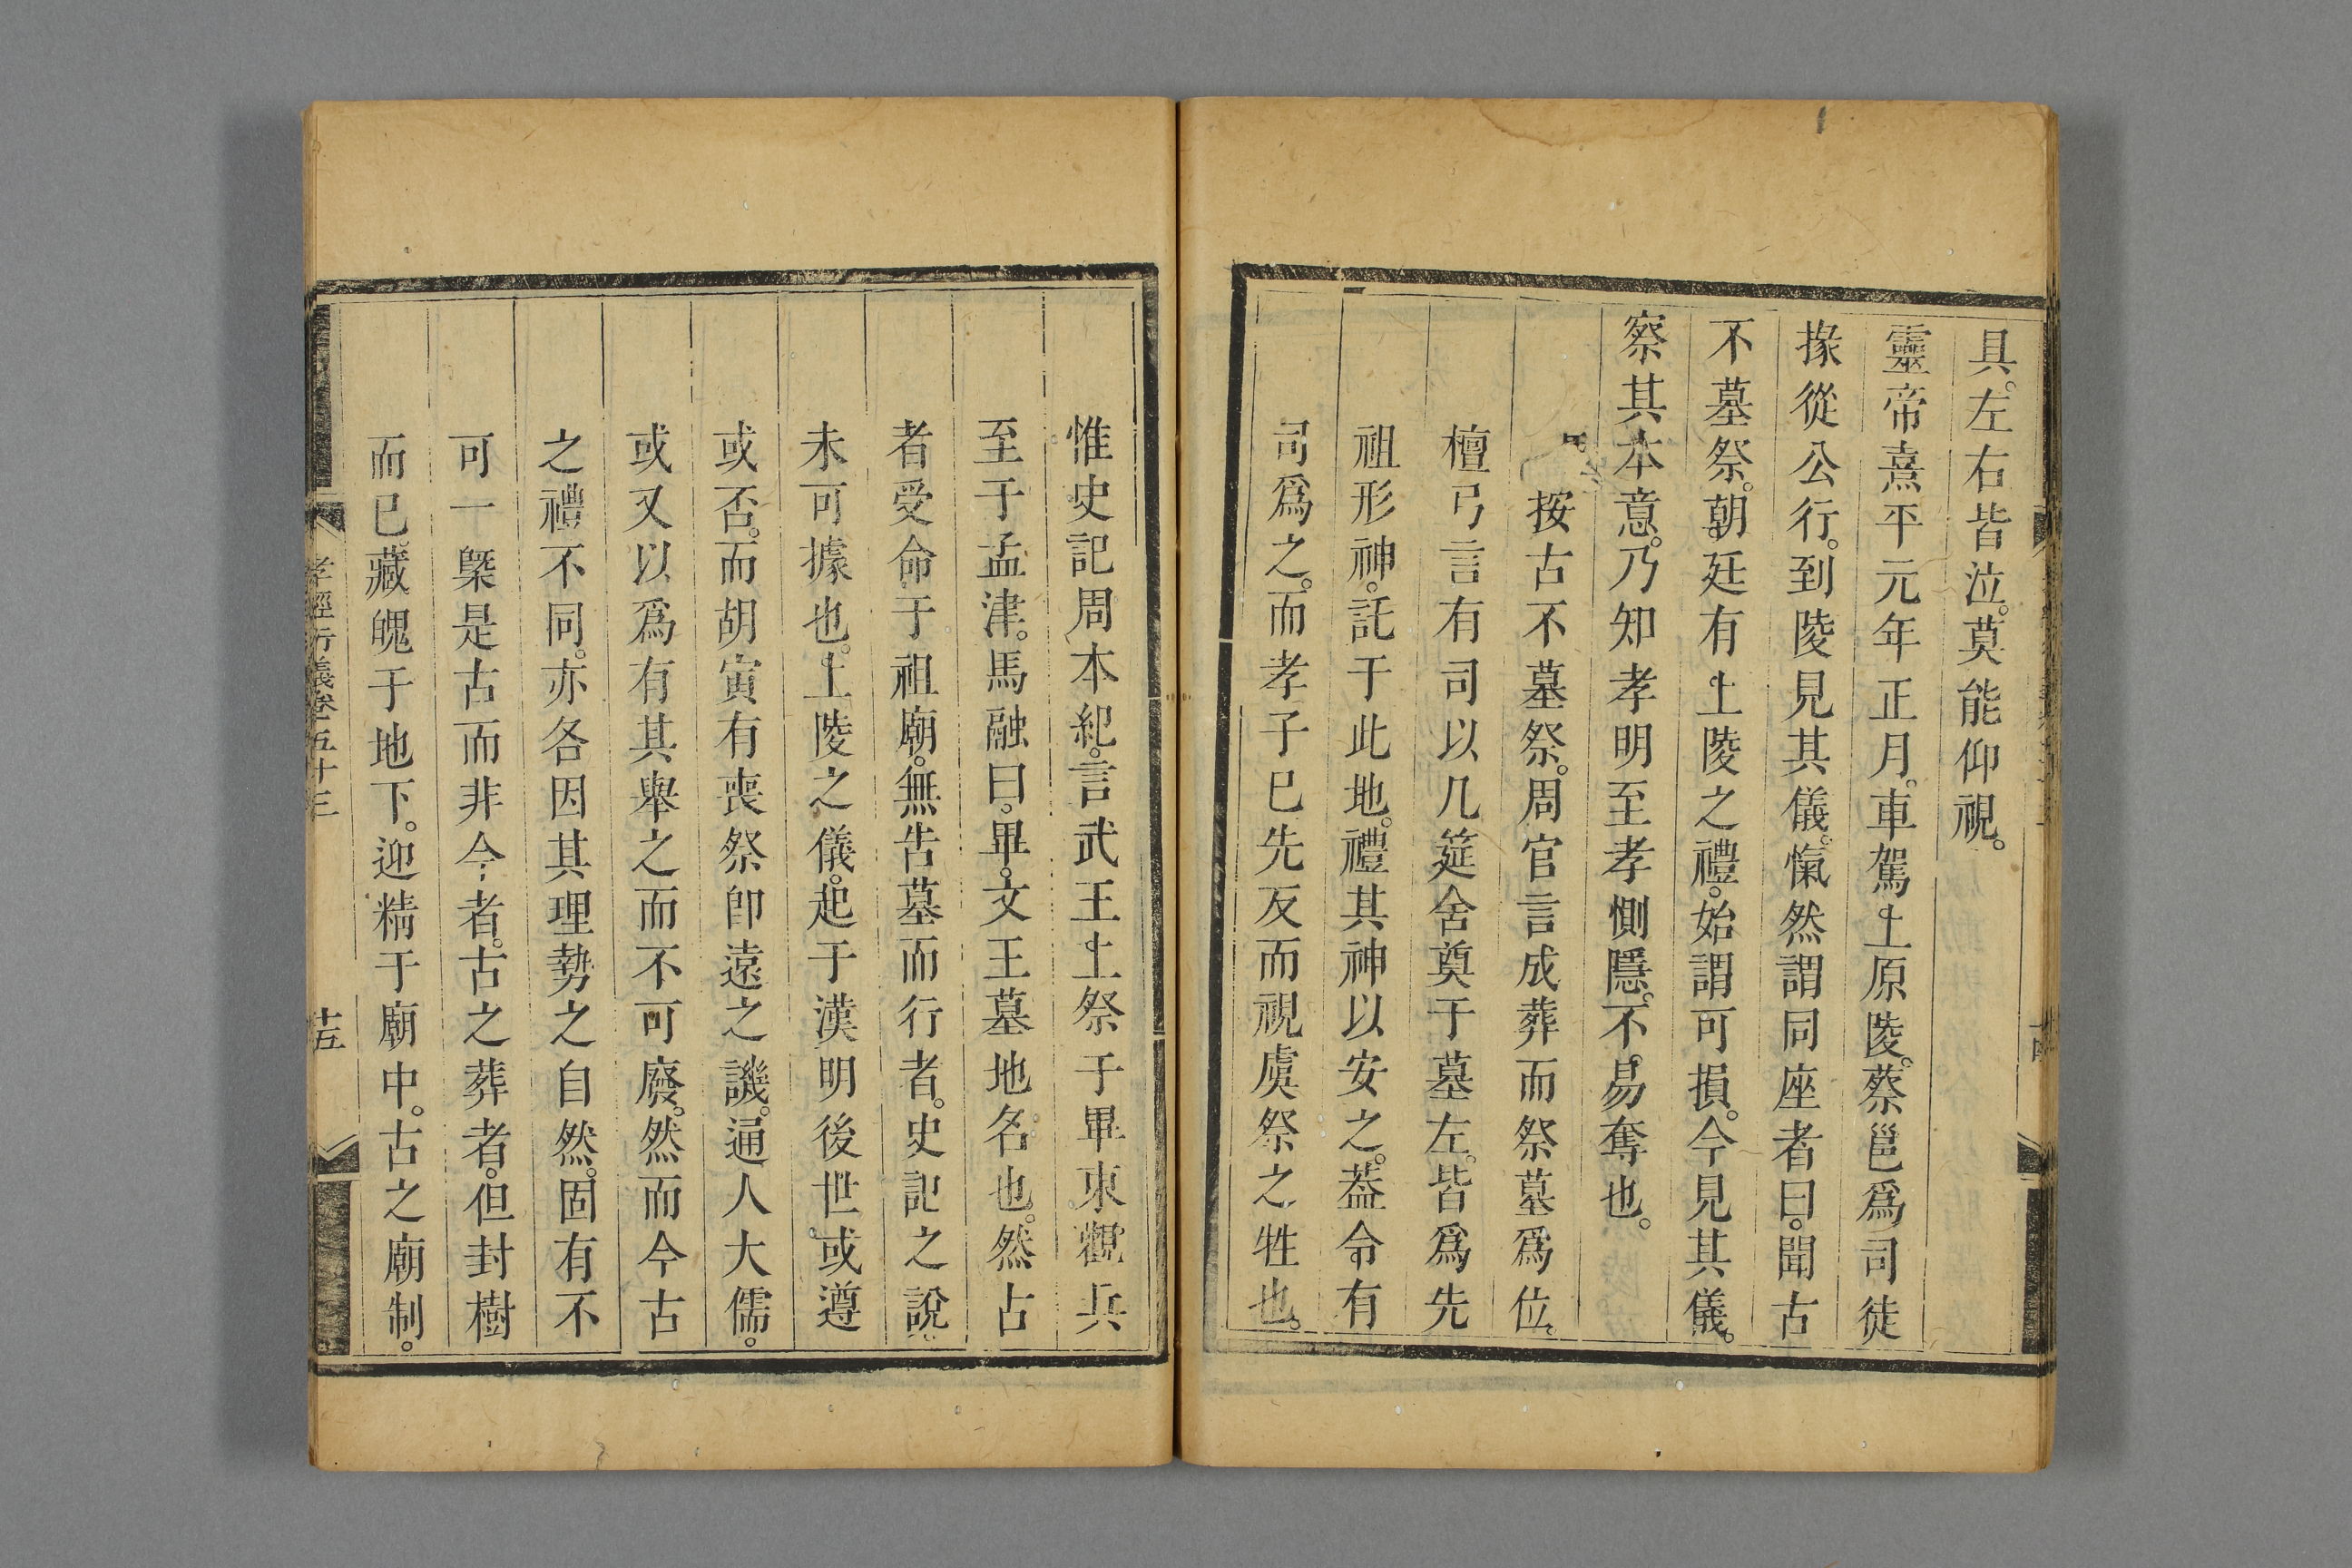 具。左右皆泣。莫能仰視。
靈帝熹平元年正月。車駕上原陵。蔡邕爲司徒
掾從公行。到陵見其儀。愾然謂同座者曰。聞古
不墓祭。朝廷有上陵之禮。始謂可損。今見其儀。
察其本意。乃知孝明至孝惻隱。不易奪也。
按古不墓祭。周官言成葬而祭墓爲位。
檀弓言有司以几筵舍奠于墓左。皆爲先
祖形神。託于此地。禮其神以安之。葢令有
司爲之。而孝子已先反而視虞祭之牲也。
惟史記周本紀。言武王上祭于畢。東觀兵
至于孟津。馬融曰。畢。文王墓地名也。然古
者受命于祖廟。無告墓而行者。史記之說
未可據也。上陵之儀。起于漢明後世。或遵
或否。而胡寅有喪祭卽遠之譏。通人大儒。
或又以爲有其舉之而不可廢。然而今古
之禮不同。亦各因其理勢之自然。固有不
可一槩是古而非今者。古之葬者。但封樹
而已。藏魄于地下。迎精于廟中。古之廟制。
孝經衍義卷五十三
十五